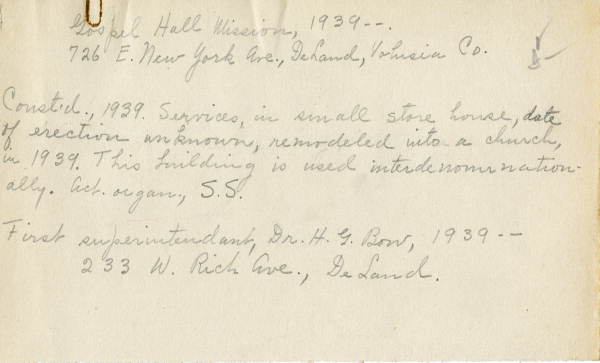 Gospel Hall Mission, 1939--.
726 E. New York Ave., DeLand, Volusia Co.
Const'd., 1939. Services, in small store house, date
of erection unknown, remodeled into a church,
in 1939. This building is used interdenomination-
ally. Act. organ., S.S.
First superintendant, Dr. H. G. Bow, 1939--
233 W. Rich Ave., DeLand.